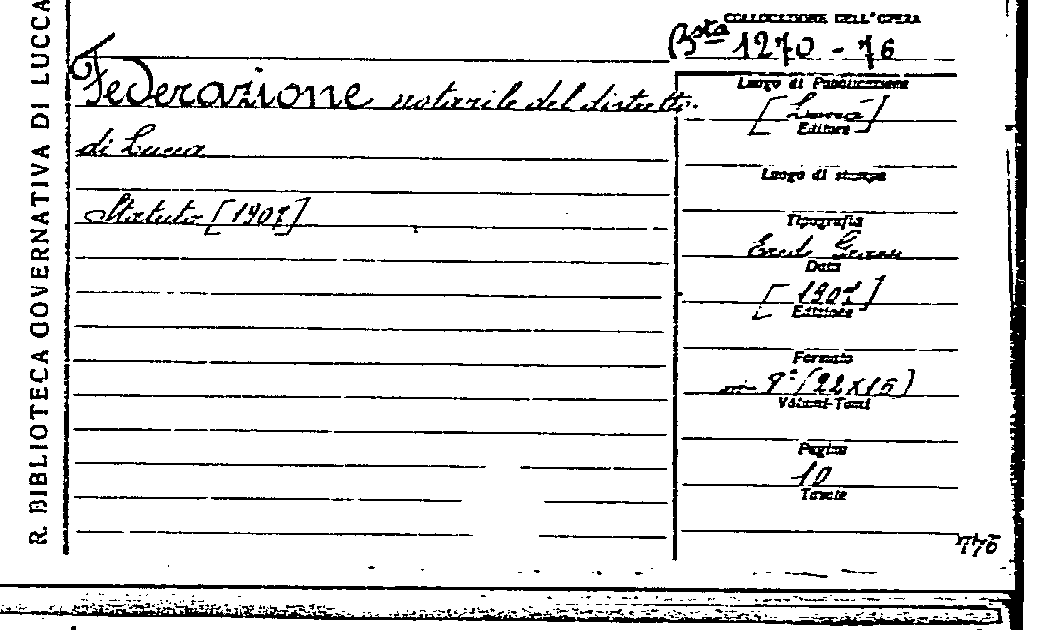 R. BIBLIOTECA GOVERNATIVA DI LUCCA
COLLOCAZIONE DELL'OPERA
Bsta 1270 - 76
Federazione notarile del distretto
di Lucca
Statuto [1907]
Luogo di Pubblicazione
[Lucca]
Editore
Luogo di stampa
Tipografia
Data
[1907]
Edizione
Formato
in 8° (22x15)
Volumi-Tomi
Pagine
10
Tavole